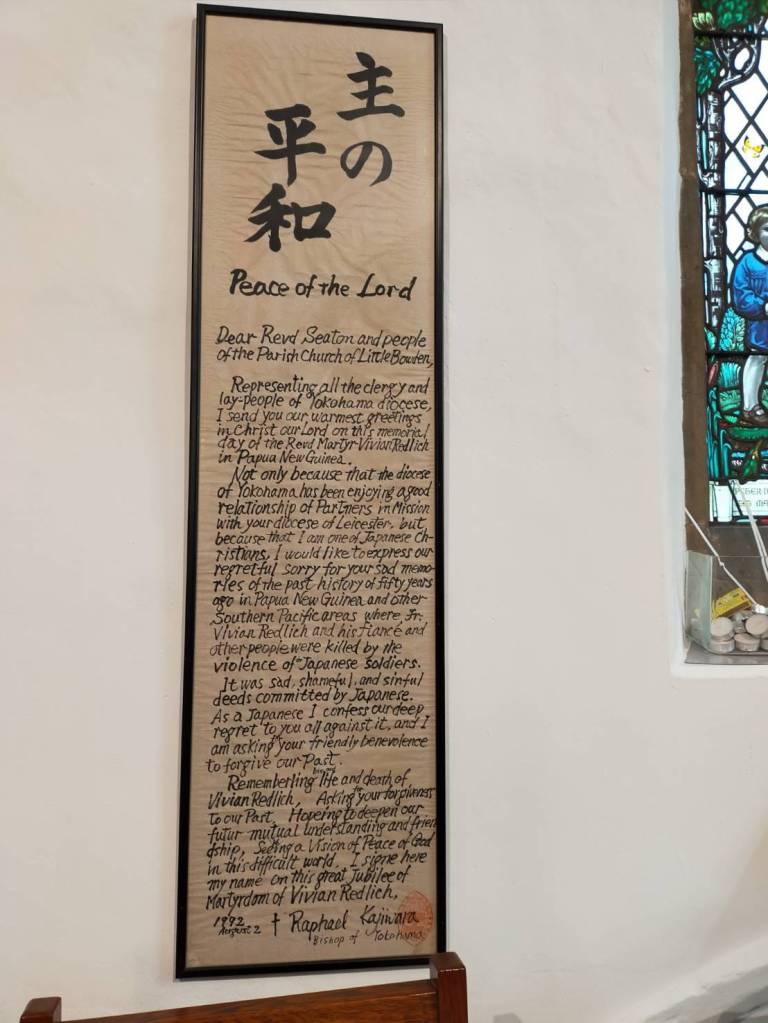 主の
平和
Peace of the Lord
Dear Revd Seaton and people
of the Parish Church of Little Bowden,
Representing all the clergy and
lay-people of Yokohama diocese,
I send you our warmest greetings
in Christ our Lord on this memorial
day of the Revd Martyr Vivian Redlich
in Papua New Guinea.
Not only because that the diocese
of Yokohama has been enjoying a good
relationship of Partners in Mission
with your diocese of Leicester, but
because that I am one of Japanese Ch-
ristians, I would like to express our
regretful sorry for your sad memo-
ries of the past history of fifty years
ago in Papua New Guinea and other
Southern Pacific areas where Fr.
Vivian Redlich and his fiancé and
other people were killed by the
violence of Japanese soldiers.
It was sad, shameful, and sinful
deeds committed by Japanese.
As a Japanese I confess our deep
regret to you all against it, and I
am asking your friendly benevolence
to forgive our Past.
Rememberling life and death of
Vivian Redlich, Asking your forgiveness
to our Past, Hopering to deepen our
futur mutual understanding and frien
dship, Seeing a Vision of Peace of God
in this difficult world, I signe here
my name on this great Jubilee of
Martyrdom of Vivian Redlich,
1992
August 2 † Raphael Kajiwara
Bishop of Yokohama